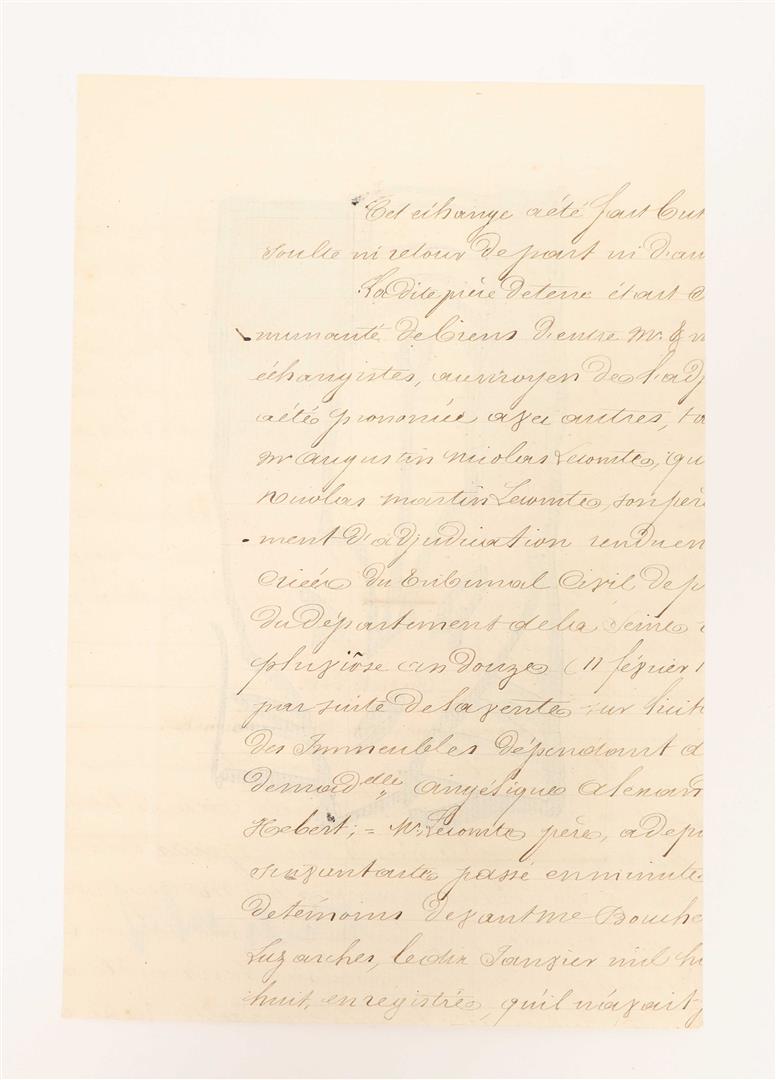 Cet échange a été fait but
soulte ni retour de part ni d'au
La dite pièce de terre était c
munauté de biens d'entre Mr. & m
échangistes, au moyen de l'adj
a été prononcée avec autres, ta
Mr augustin nicolas Lecomte, qu
nicolas martin Lecomte, son père
ment d'adjudication rendu en
criées du Tribunal Civil de p
du département de la Seine
pluviôse an douze (11 février 1
par suite de la vente sur licit
des Immeubles dépendant d
demoidelle angélique alexan
Hebert; = Mr. Lecomte père, a dep
suivant acte passé en minute
de témoins devant me Bouche
Luzarches, le dix Janvier mil h
huit, enregistrée, qu'il n'avait p